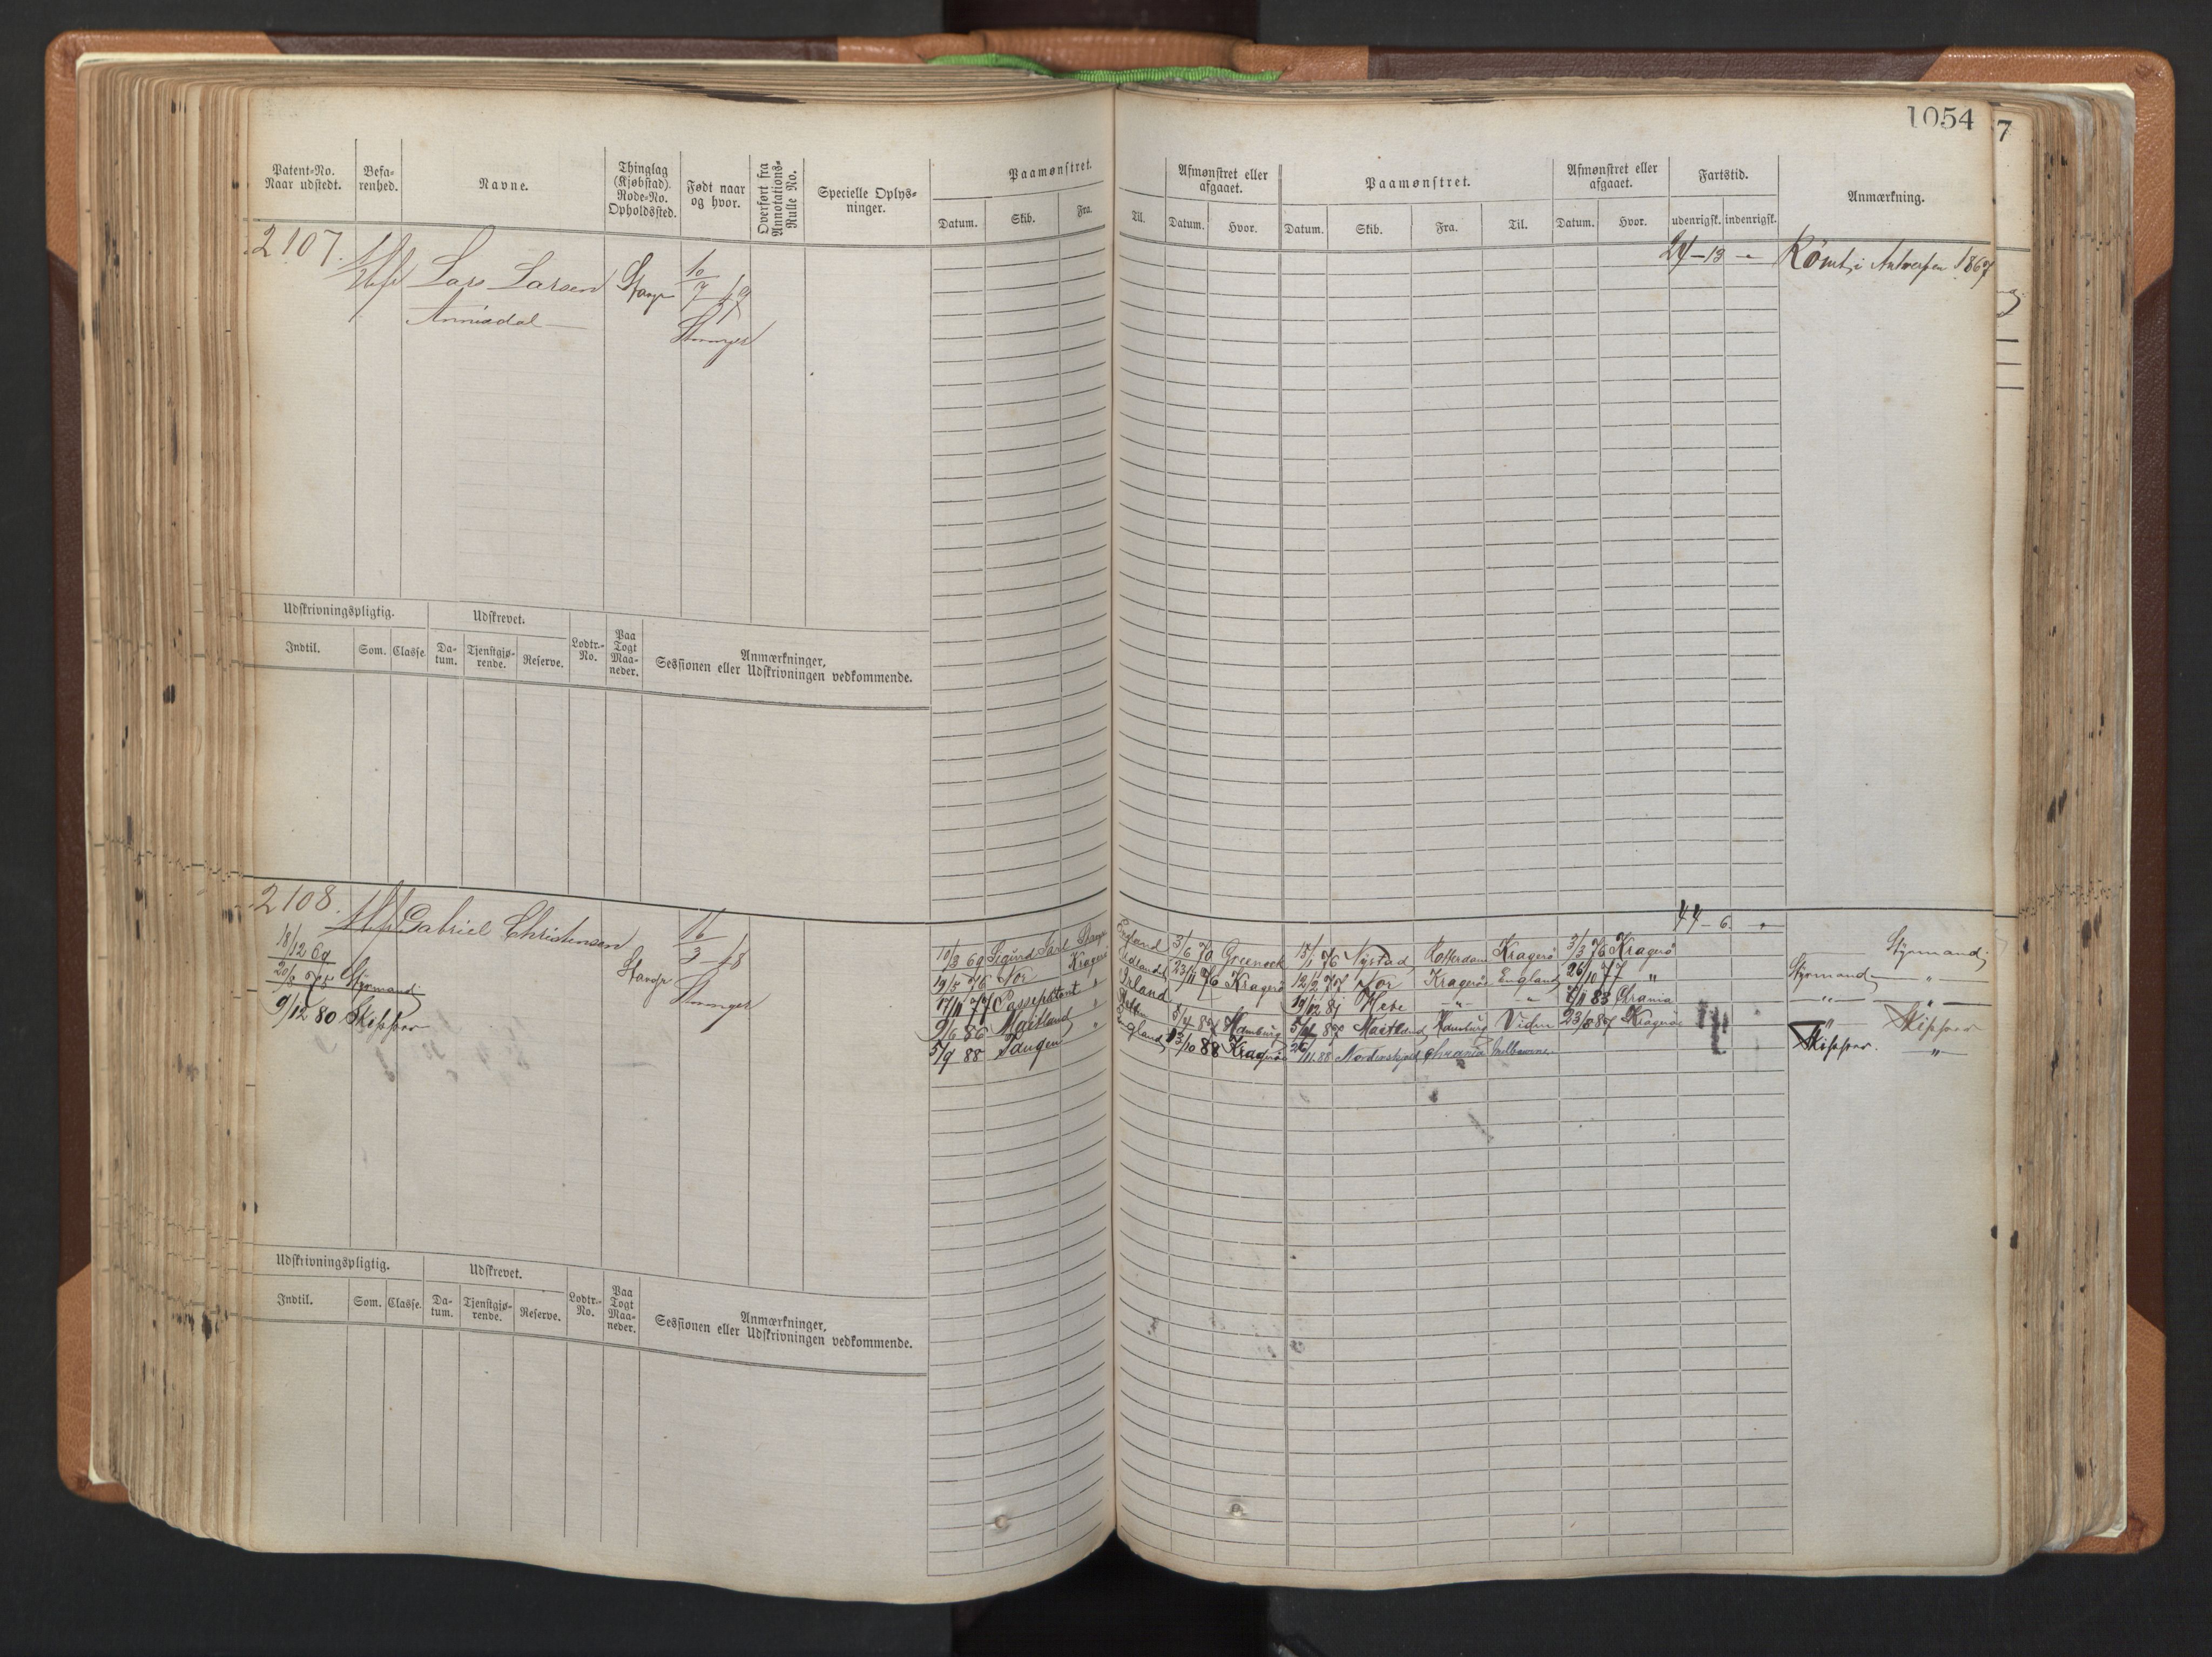 1054
7
Patent-No. Naar udstedt.
Befa-renhed.
Navne.
Thinglag (Kjøbstad). Rode-No. Opholdssted.
Født naar og hvor.
Overført fra Annotations-Rulle No.
Specielle Oplys-ninger.
Paamønstret.
Datum. Skib. Fra.
Til.
Afmønstret eller afgaaet.
Datum. Hvor.
Paamønstret.
Datum. Skib. Fra. Til.
Afmønstret eller afgaaet.
Datum. Hvor.
Fartstid.
udenrigsk. indenrigsk.
Anmærkning.
2107. Lars Larsen 10/7 49 24-13 - Rømt i Antwerpen 1867
Annisdal
Udskrivningspligtig. Udskrevet.
Indtil. Som. Classe. Da-tum. Tjenstgjø-rende. Reserve. Lodtr.-No. Paa Togt Maa-neder. Anmærkninger, Sessionen eller Udskrivningen vedkommende.
2108. Gabriel Christensen 16/3 - 48 44-6. "
18/12 69
20/8 75 Styrmand
9/12 80 Skipper
10/3 69 Sigurd England 3/6 70 Greenock 15/1 76 Nystad Rotterdam Kragerø 3/3 76 Kragerø Styrmand
19/5 76 Nor Kragerø Udlandet 23/11 76 Kragerø 12/2 77 Nor Kragerø England 26/10 77 " Styrmand "
17/11 77 " Irland 19/12 81 Hebe " " 7/11 83 Crania " "
9/6 86 Maitland " 5/4 87 Hamburg 5/4 87 Maitland Hamburg 23/8 87 Kragerø " Skipper
5/9 88 Tangen " England 13/10 88 Kragerø 26/11 88 Nordenskjold Chrania Melbourne Skipper. "
Udskrivningspligtig. Udskrevet.
Indtil. Som. Classe. Da-tum. Tjenstgjø-rende. Reserve. Lodtr.-No. Paa Togt Maa-neder. Anmærkninger, Sessionen eller Udskrivningen vedkommende.